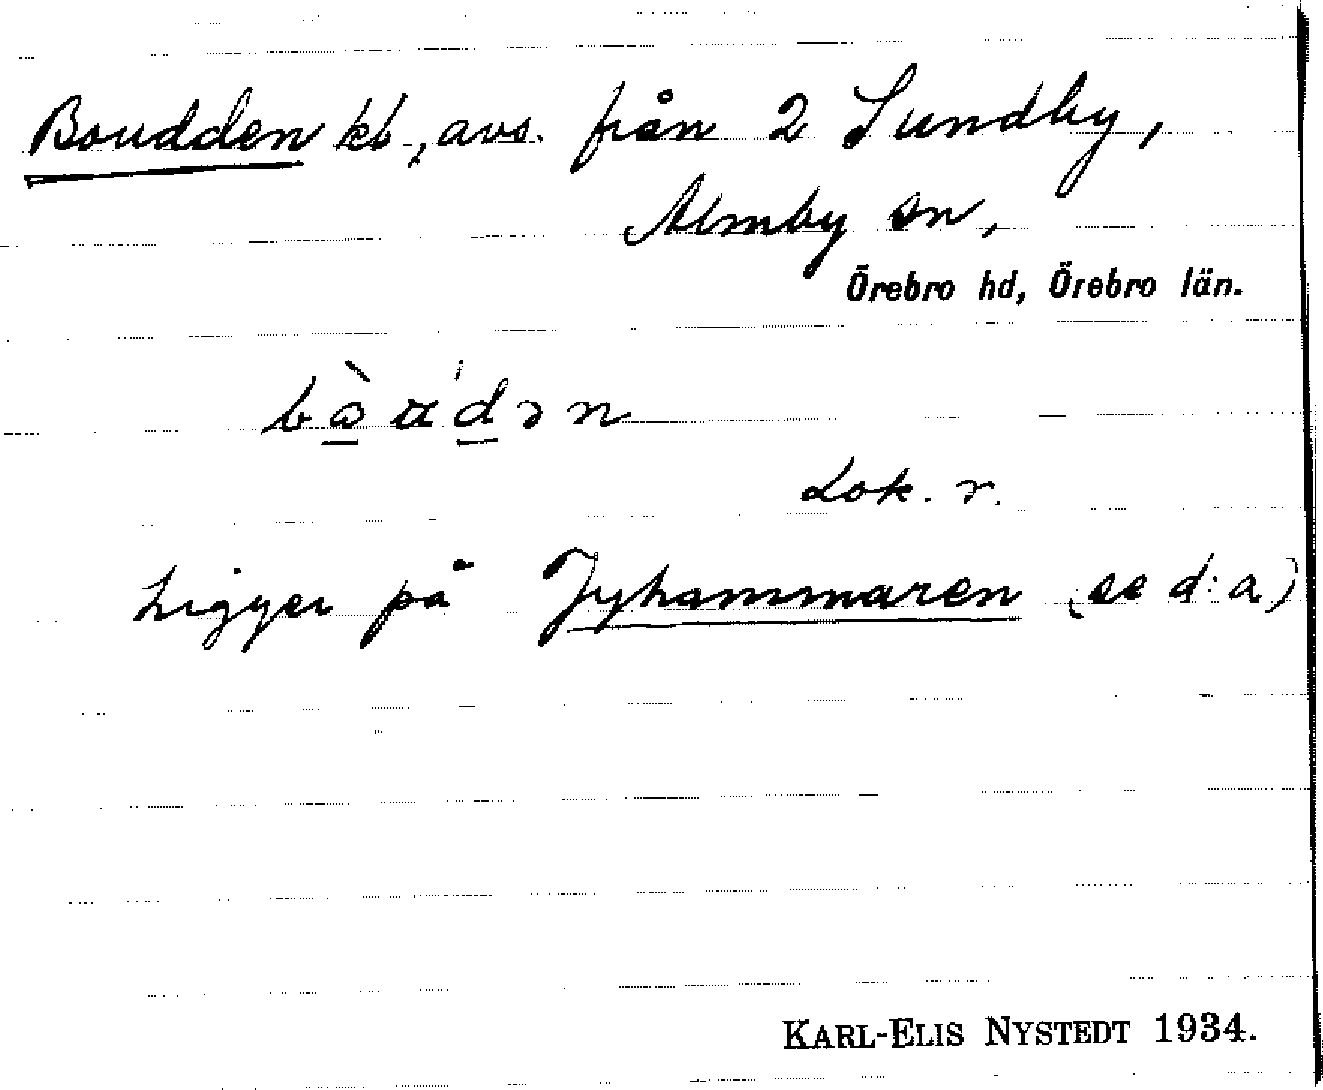 Boudden kb, avs. från 2 Sundby,
Almby sn,
Örebro hd, Örebro län.
Lok. r.
Ligger på Jyhammaren (se d:a)
KARL-ELIS NYSTEDT 1934.